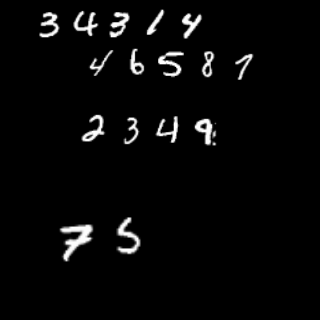 34314
46587
2349
75